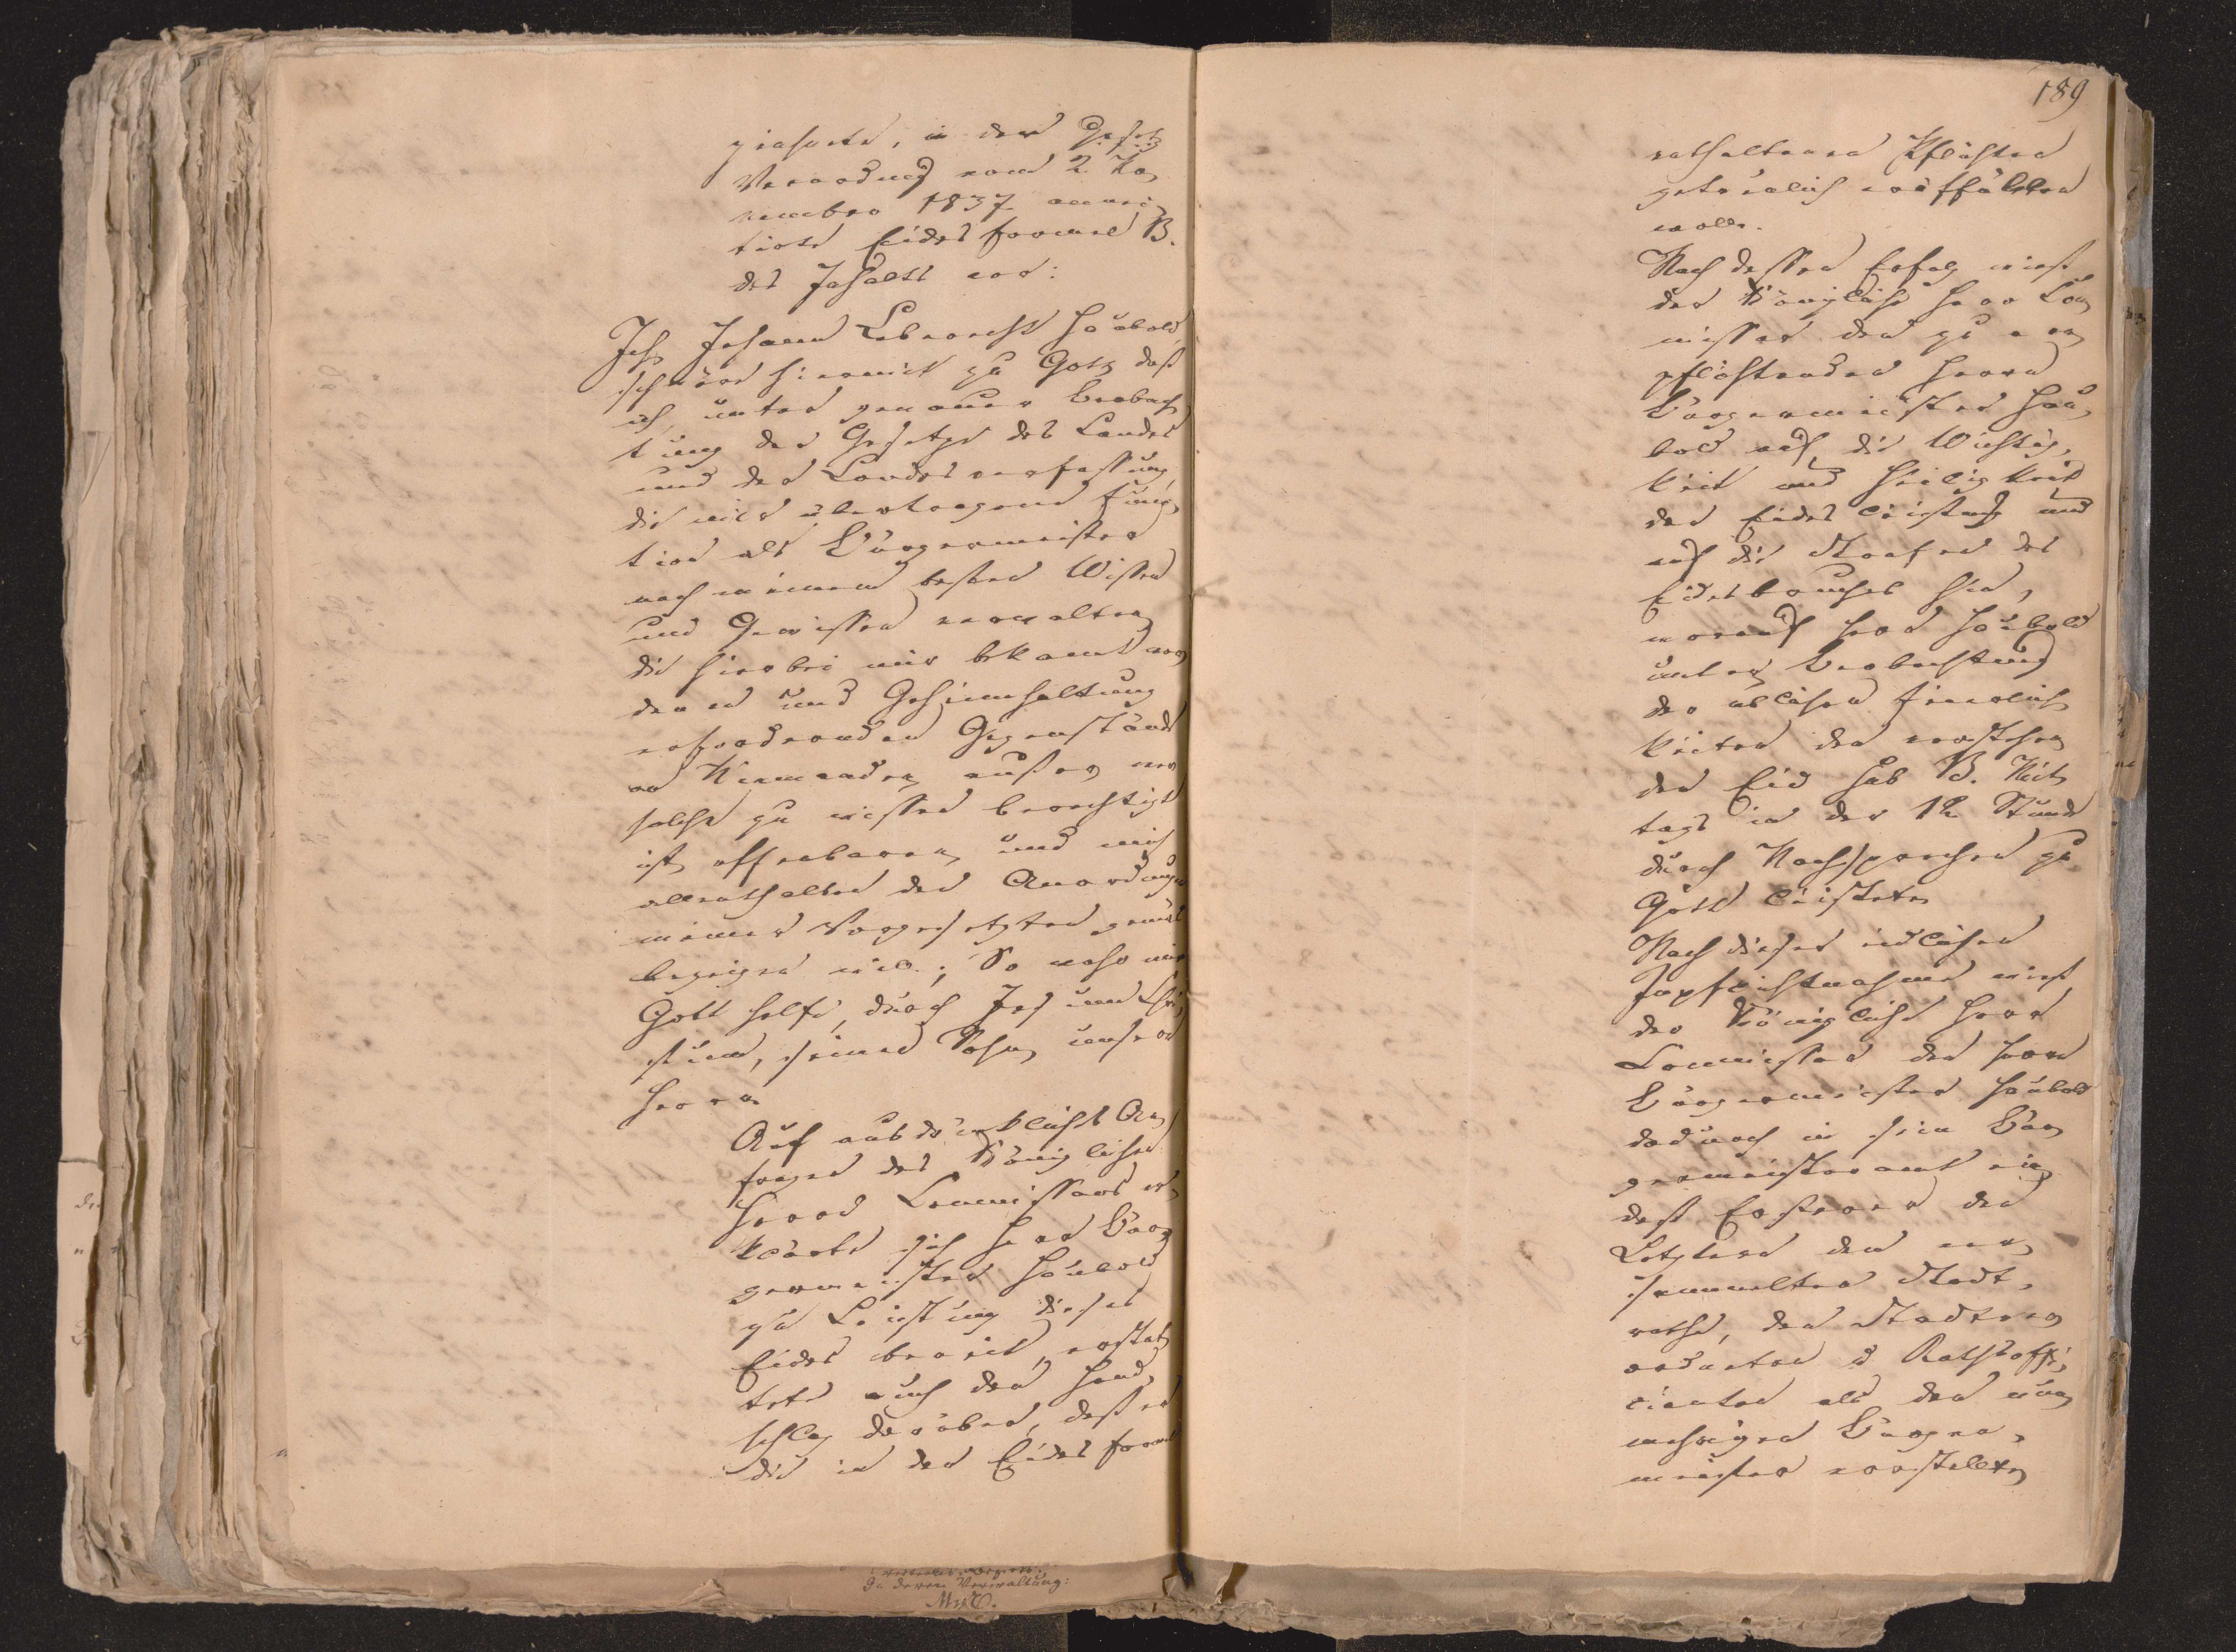 zeichnete, in der Gesetz
Verordnung vom 2 No¬
vember 1837 annec¬
tirte Eidesformel B.
des Inhalts vor:
Ich Johann Lebrecht Haubold,
schwöre hiermit zu Gott, daß
ich, unter genauer Beobach¬
tung der Gesetze des Landes
und der Landesverfassung,
die mir übertragene Func¬
tion als Bürgermeister
nach meinem besten Wissen
und Gewissen verwalten,
die hierbei mir bekannt wer¬
denden und Geheimhaltung
erfordernden Gegenstände
Niemanden, außer wer
solche zu wissen berechtigt
ist, offenbaren, und mich
allenthalben den Anordnungen
meiner Vorgesetzten gemäß
bezeigen will; So wahr mir
Gott helfe, durch Jesum Chri¬
stum, seinen Sohn, unsern
Herrn.
Auf ausdrücklichs An¬
fragen des Königlichen
Herrn Commissars er¬
klärte sich Herr Bür¬
germeister Haubold
zu Leistung dieses
Eides bereit, erstat¬
tete auch den Hand¬
schlag darüber, daß er
die in der Eidesformel
In deren Verwaltung:
189
enthaltenen Pflichten
getreulich erfüllen
wolle.
Nach dessen Erfolg wieß
der Königliche Herr Com¬
missar den zu ver¬
pflichtenden Herrn
Bürgermeister Hau¬
bold auf die Wichtig¬
keit und Heiligkeit
der Eidesleistung und
auf die Strafen des
Eidesbruches hin,
worauf Herr Haubold
unter Beobachtung
der üblichen Feierlich¬
keiten den vorstehen¬
den Eid sub B. Mit¬
tags in der 12 Stunde
durch Nachsprechen zu
Gott leistete.
Nach dieser eidlichen
Inpflichtnahme wieß
der Königliche Herr
Commissar den Herrn
Bürgermeister Haubold
dadurch in sein Bür¬
germeisteramt ein,
daß Ersterer den
Letztern dem ver¬
sammelten Stadt¬
rathe, den Stadtver¬
ordneten u Rathsoffi¬
cianten als den nun¬
mehrigen Bürger¬
meister vorstellte,